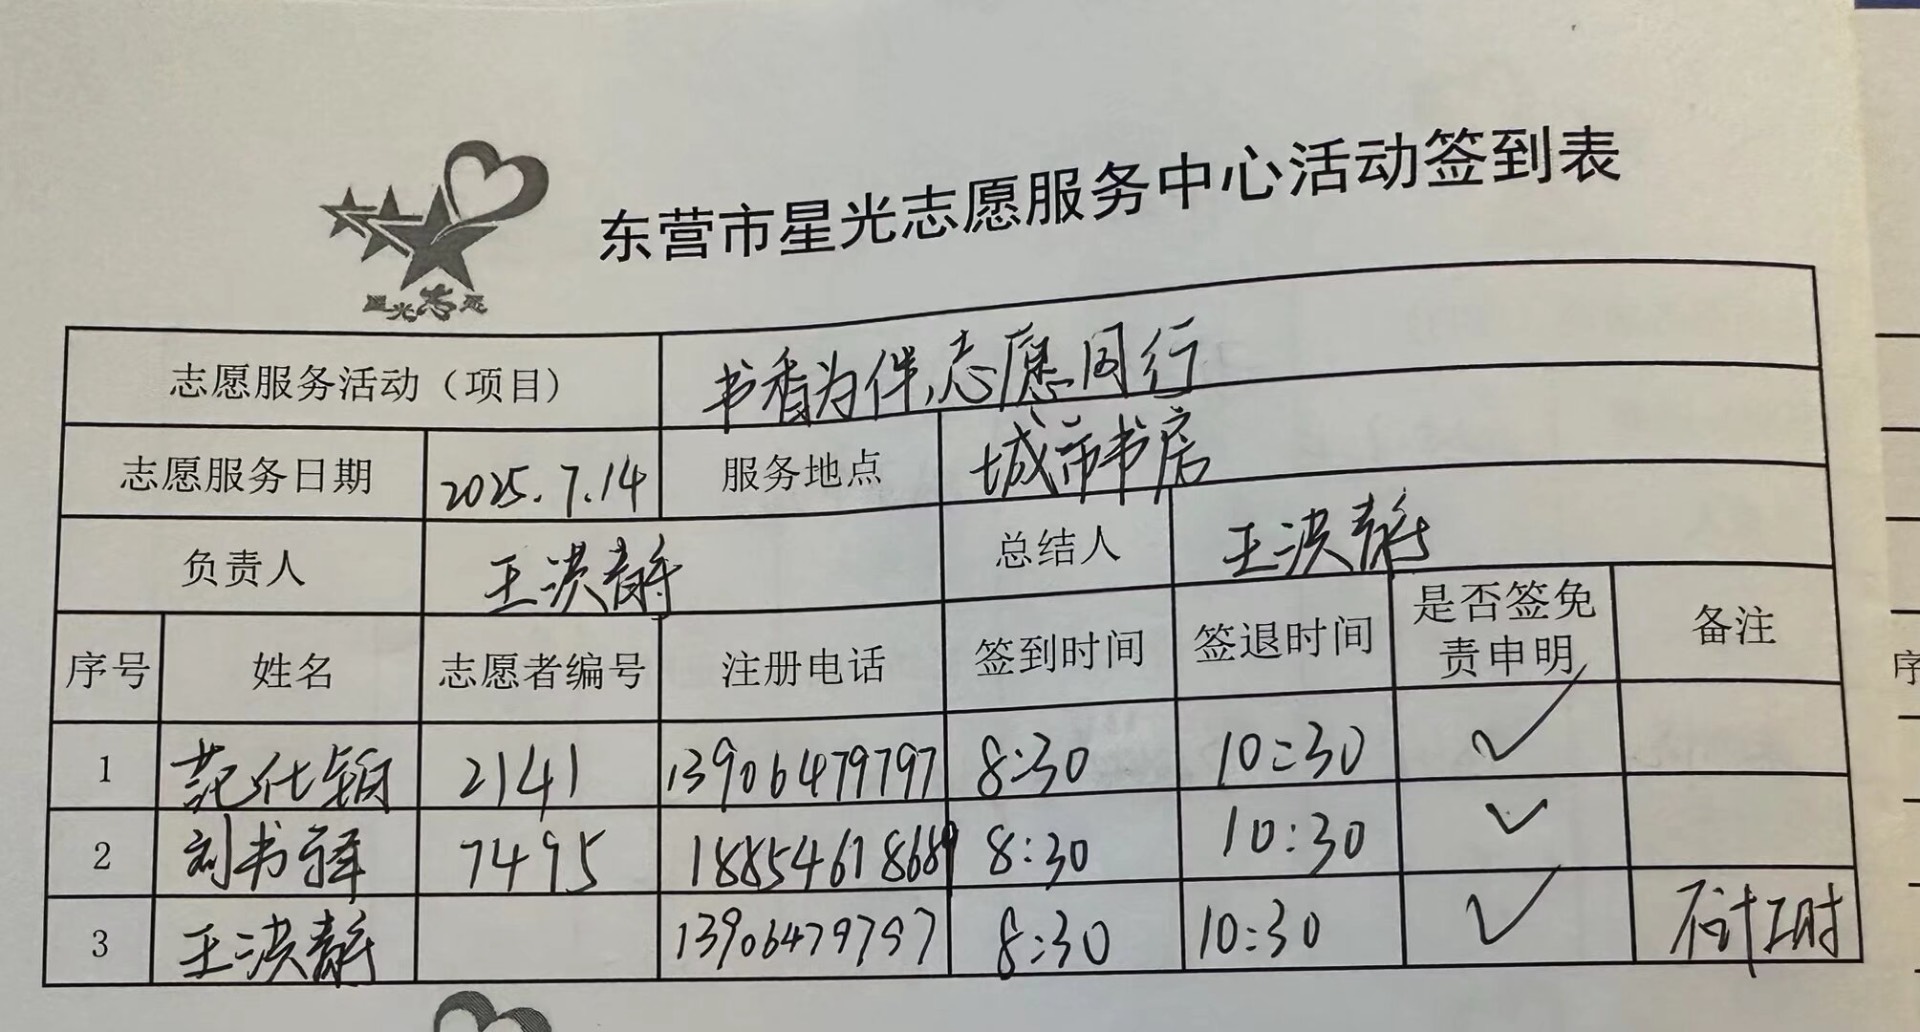 星光志愿
东营市星光志愿服务中心活动签到表
志愿服务活动（项目） 书香为伴,志愿同行
志愿服务日期 2025.7.14 服务地点 城市书房
负责人 王洪静 总结人 王洪静
序号 姓名 志愿者编号 注册电话 签到时间 签退时间 是否签免责申明 备注
1 范仕颖 2141 13906479797 8:30 10:30 ✓
2 刘书铎 7495 18854678689 8:30 10:30 ✓
3 王洪静 13906479797 8:30 10:30 ✓ 不计工时
序